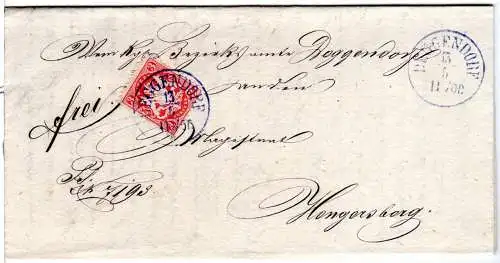 Vom Kgl. Bezirksamte Deggendorf
an den
frei.
Magistrat
Hengersberg.
DEGGENDORF
13
5
DEGGENDORF
13